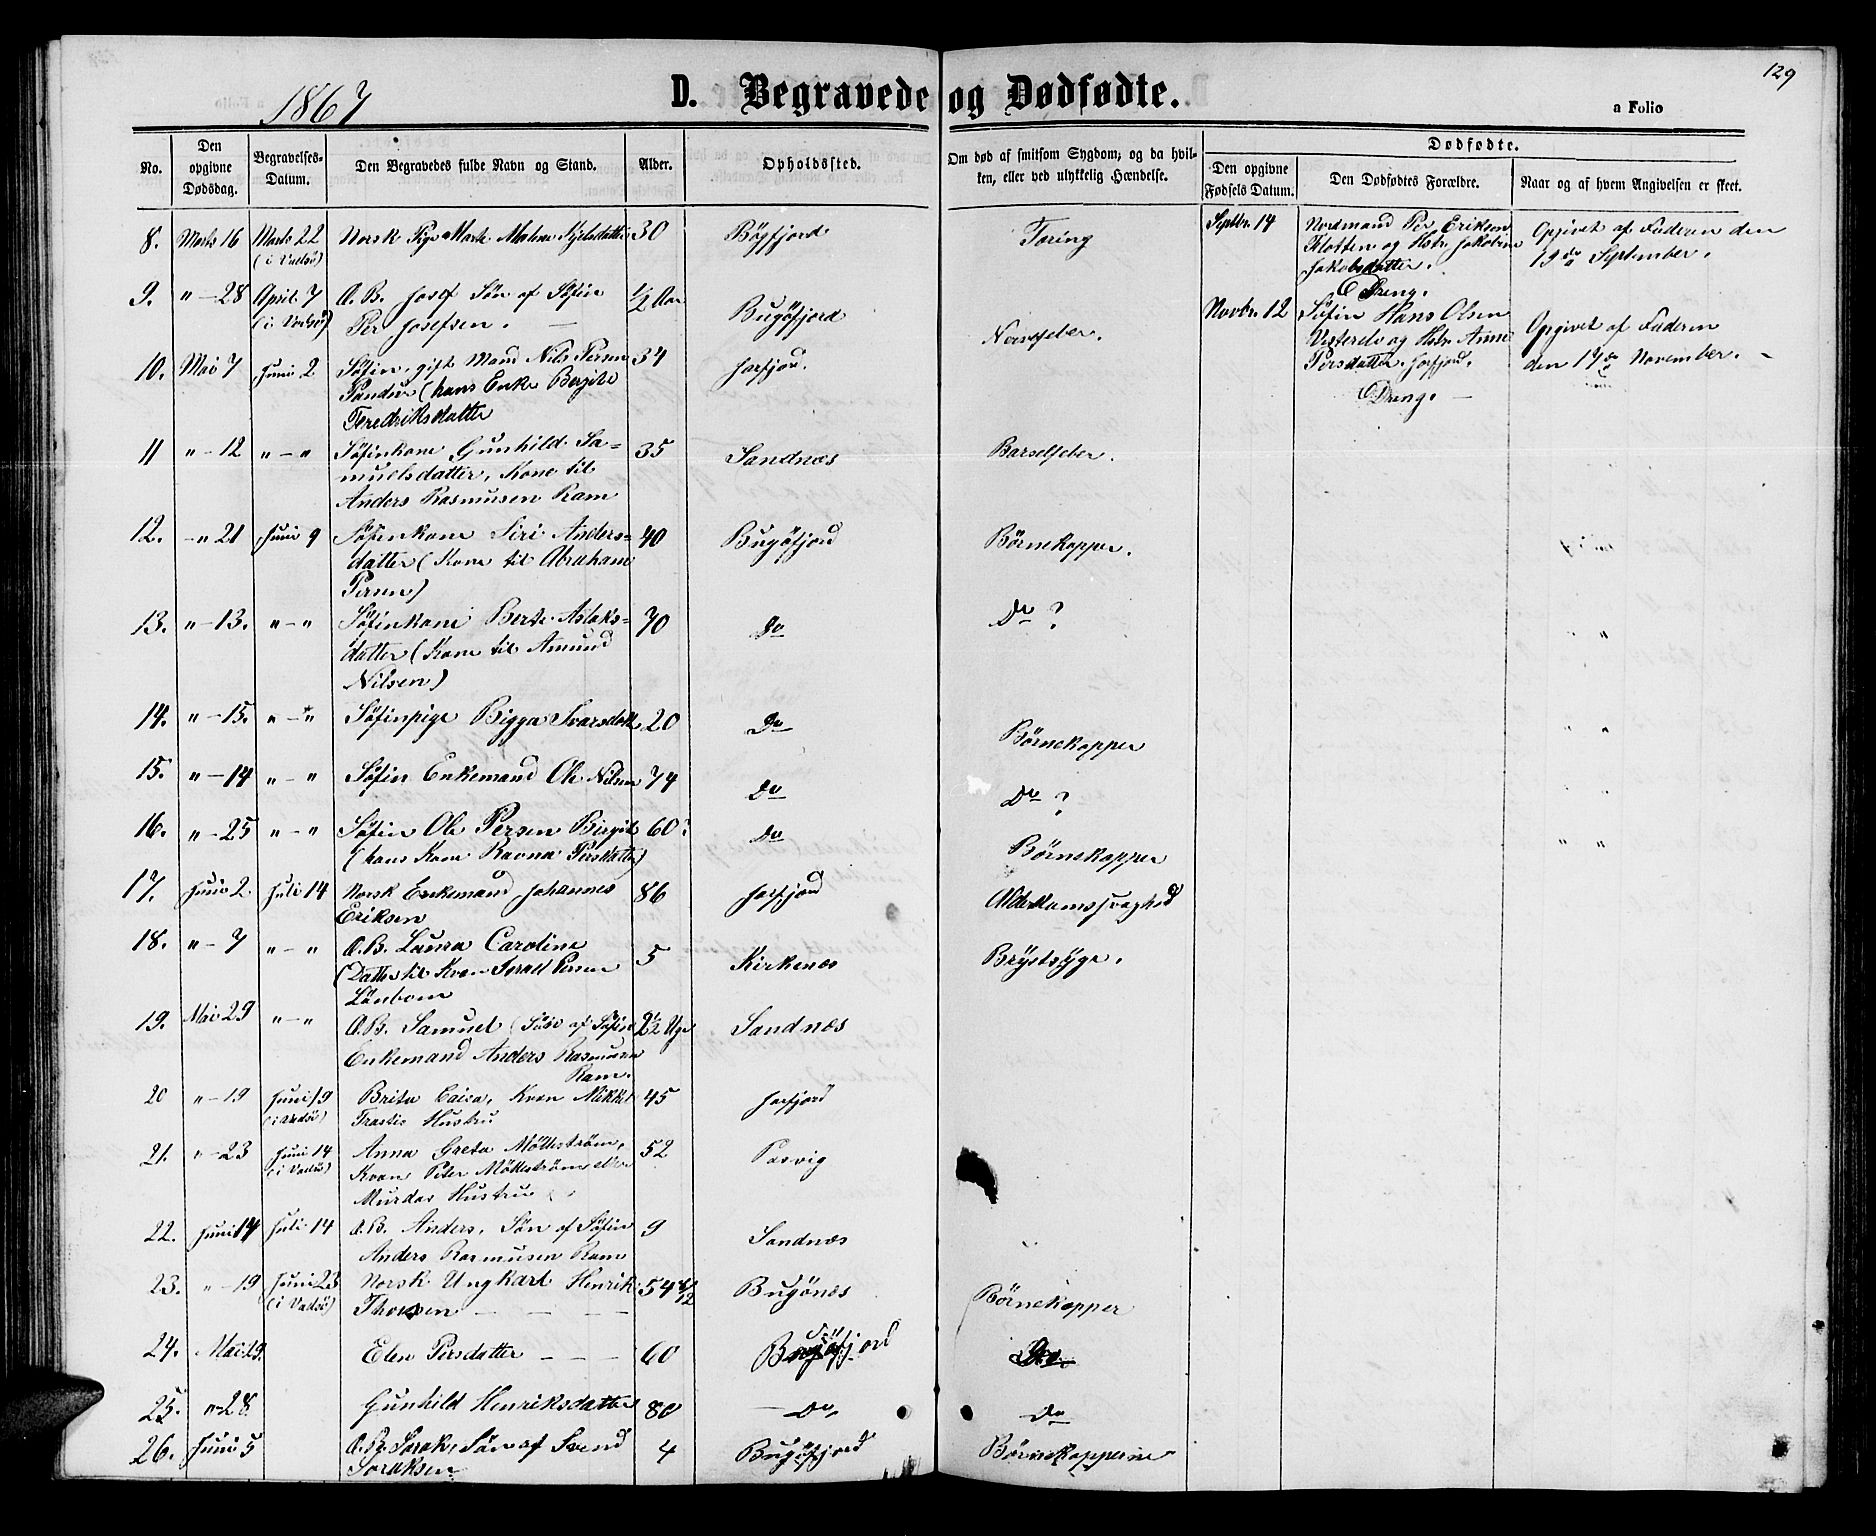 129
1867
D. Begravede og Dødfødte.
a Folio
No.
Den opgivne Dødsdag.
Begravelses-Datum.
Den Begravedes fulde Navn og Stand.
Alder.
Opholdssted.
Om død af smitsom Sygdom; og da hvilken, eller ved ulykkelig Hændelse.
Dødfødte.
Den opgivne Fødsels Datum.
Den Dødfødtes Forældre.
Naar og af hvem Angivelsen er skeet.
8. Marts 16 Marts 22 Norsk Pige Marte Malene Kjelsdatter 30 Bøgfjord Tæring
(i Vadsö)
9. " — 28 April 7 Æ. B. Josef Søn af Søfin ½ Aar Bugøfjord Nervefeber.
(i Vadsö) Per Josefsen. —
10. Mai 7 Juni 2 Søfin, gift Mand Nils Persen 34 Jarfjord.
(hans Enke Bergite
Fredriksdatter
11 " — 12 " — " Søfinkone Gunhild Sa=
muelsdatter, Kone til 35 Sandnæs Barselfeber.
Anders Rasmusen Ram
12. — " 21 Juni 9 Søfinkone Siri Anders= 40 Bugøfjord Børnekopper.
datter (Kone til Abraham
Persen)
13. " — 13. " — " Søfinkone Berte Aslaks= 70 Do Do ?
datter (Kone til Amund
Nilsen)
14. " — 15. " — " Søfinpige Bigga Ivarsdatt. 20 Do Børnekopper
15. " — 14 " — " Søfin Enkemand Ole Nilsen 74 Do Do ?
16. " — 25 " — " Søfin Ole Persen 60 Do Børnekopper
(hans Kone Ravna Persdatter)
17. Juni 2. Juli 14 Norsk Enkemand Johannes 86 Jarfjord Alderdomssvaghed
Eriksen
18. " — 7 " — " Æ. B. Laura Caroline 5 Kirkenæs Brystsyge.
(Datter til Kvæn Israel Persen
Lönbom
19. Mai 29 " — " Æ. B. Samuel (Søn af Søfin 2½ Uge Sandnæs
Enkemand Anders Rasmusen
Ram.
20 " — 19 Juni 19 Brita Caisa, Kvæn Mikkel 45 Jarfjord
(i Vadsö) Hustru
21. " — 23 Juni 14 Anna Greta Mölleström, 52 Pasvig
(i Vadsö) Kvæn Peter Mölleström eller
Murdas Hustru
22. Juni 14 Juli 14 Æ. B. Anders, Søn af Søfin 9 Sandnæs
Anders Rasmusen Ram
23. " — 19 Juni 23 Norsk Ungkarl Henrik 54 8/12 Bugønæs Børnekopper
(i Vadsö) Thorsen — — —
24. Mai 19. Elen Persdatter — — — 60 Bugøfjord Do
25. " — 28. Gunhild Henriksdatter 80 — Do Do
26. Juni 5 Æ. B. Israk, Søn af Svend 4 Bugøfjord Børnekopperne
Israksen
Septbr. 14 Nordmand Per Eriksen
Klotten og Hstr. Jakobine
Jakobsdatter.
Dreng.
Opgivet af Faderen den
19de September.
Novbr. 12 Søfin Hans Olsen
Vesterelv og Hstr. Anne
Persdatter. Jarfjord.
Dreng. —
Opgivet af Faderen
den 17de November. —